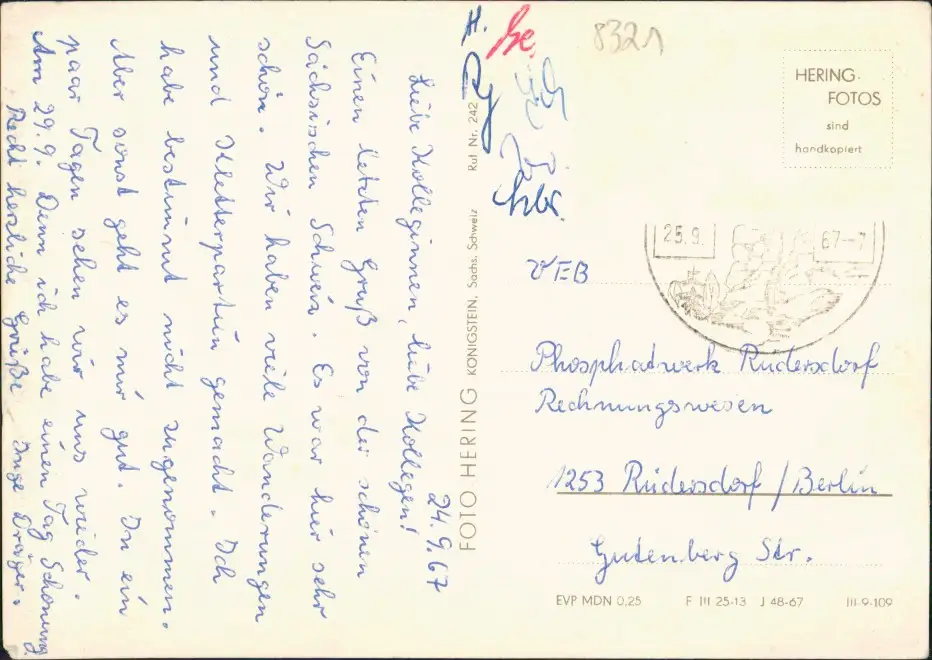 24.9.67
Liebe Kolleginnen, liebe Kollegen!
Einen letzten Gruß von der schönen
Sächsischen Schweiz. Es war hier sehr
schön. Wir haben viele Wanderungen
und Kletterpartien gemacht. Ich
habe bestimmt nicht zugenommen.
Aber sonst geht es mir gut. In ein
paar Tagen sehen wir uns wieder.
Am 29.9. Denn ich habe einen Tag Schonung.
Recht herzliche Grüße Inge Dräger.
FOTO HERING KÖNIGSTEIN, Sächs. Schweiz Ruf Nr. 242
H.
8321
HERING-
FOTOS
sind
handkopiert
25.9. 67-7
VEB
Phosphatwerk Rüdersdorf
Rechnungswesen
1253 Rüdersdorf / Berlin
Gutenberg Str.
EVP MDN 0,25 F III 25-13 J 48-67 III-9-109